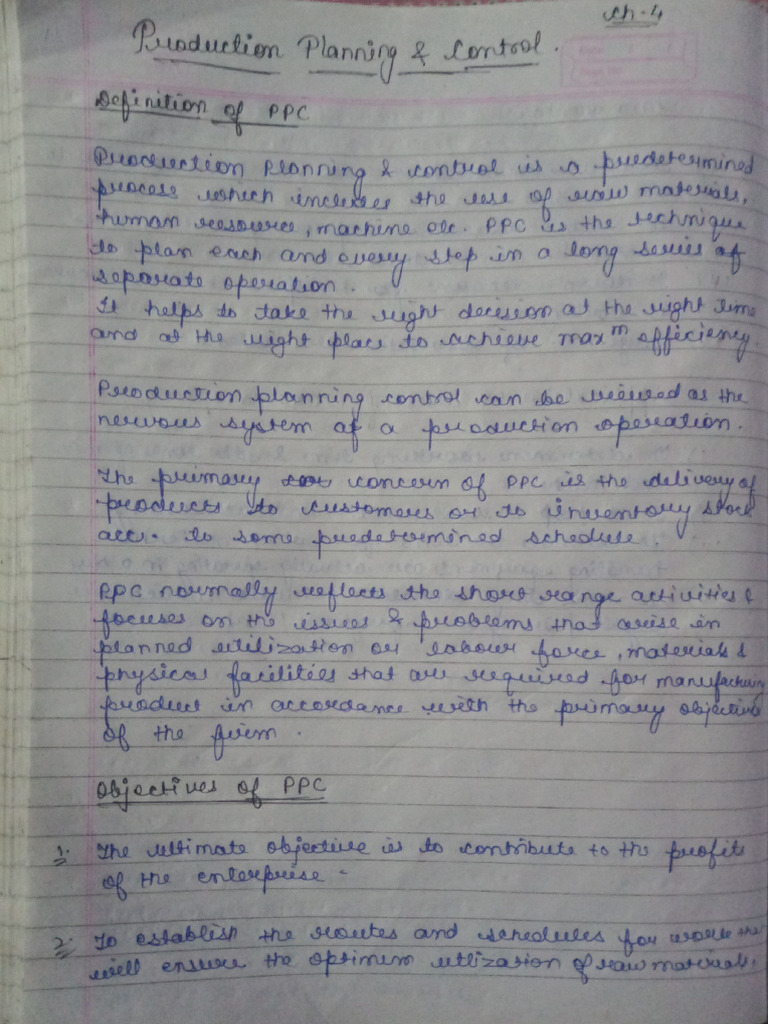 Ch-4
Production Planning & Control.
Definition of PPC
Production Planning & control is a predetermined
process which includes the use of raw materials,
human resource, machine etc. PPC is the technique
to plan each and every step in a long series of
separate operation.
It helps to take the right decision at the right time
and at the right place to achieve maxm efficiency.
Production planning control can be viewed as the
nervous system of a production operation.
The primary concern of PPC is the delivery of
products to customers or to inventory stock
acc. to some predetermined schedule.
PPC normally reflects the short range activities &
focuses on the issues & problems that arise in
planned utilization or labour force, materials &
physical facilities that are required for manufacturing
product in accordance with the primary objective
of the firm.
Objectives of PPC
1. The ultimate objective is to contribute to the profits
of the enterprise.
2. To establish the routes and schedules for work that
will ensure the optimum utlization of raw materials.